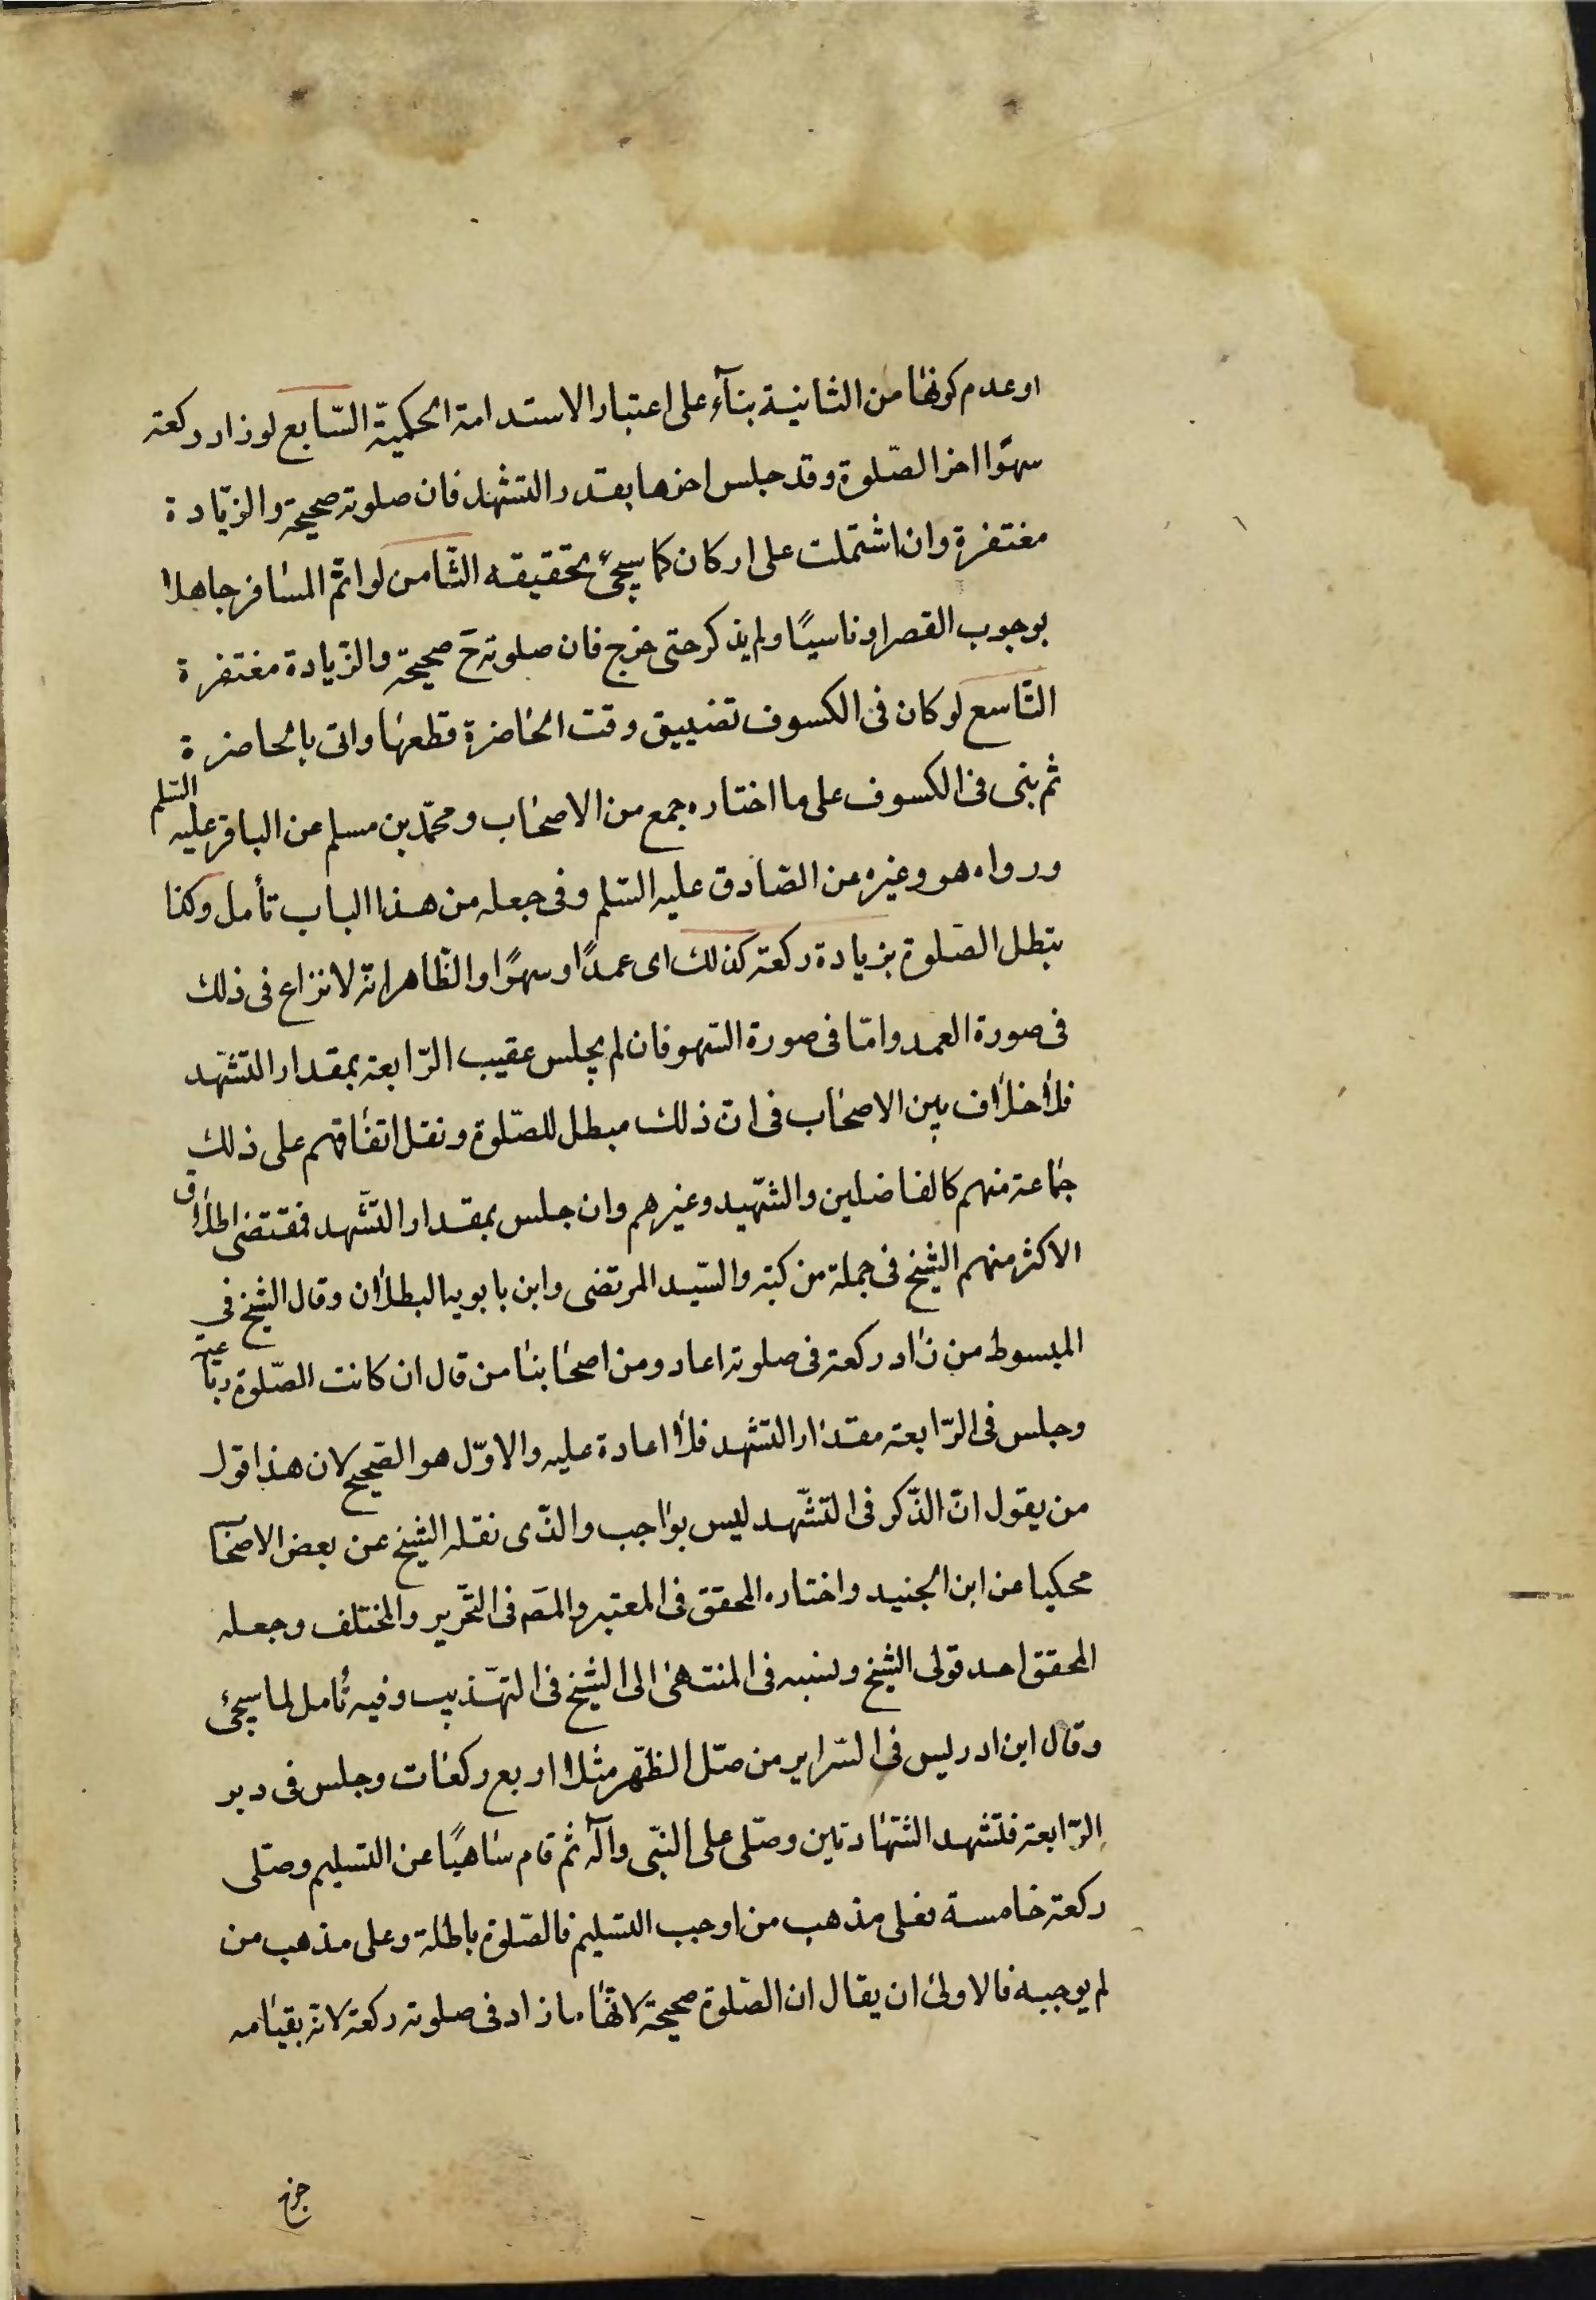 او عدم كونها من الثانية بنآء على اعتبار الاستدامة الحكمية السّابع لو زاد ركعة
سهوًا اخر الصّلوة وقد جلس اخرها بقدر التشهد فان صلوته صحيحة والزّيادة
مغتفرة وان اشتملت على اركان كما سيجئ تحقيقه الثّامن لو اتمّ المسافر جاهلا
بوجوب القصر او ناسيًا ولم يذكر حتى خرج فان صلوته ح صحيحة والزّيادة مغتفرة
التّاسع لو كان فى الكسوف تضييق وقت الحاضرة قطعها واتى بالحاضرة
ثم بنى فى الكسوف على ما اختاره جمع من الاصحاب ومحمّد بن مسلم عن الباقر عليه السّلم
ورواه هو وغيره عن الصّادق عليه السّلم وفى جعله من هذا الباب تأمل وكذا
تبطل الصّلوة بزيادة ركعة كذلك اى عمدًا وسهوًا والظّاهر انّه لا نزاع فى ذلك
فى صورة العمد وامّا فى صورة السّهو فان لم يجلس عقيب الرّابعة بمقدار التشهّد
فلا خلاف بين الاصحاب فى انّ ذلك مبطل للصّلوة ونقل اتفاقهم على ذلك
جماعة منهم كالفاضلين والشّهيد وغيرهم وان جلس بمقدار التّشهد فمقتضى اطلاق
الاكثر منهم الشيخ فى جملة من كتبه والسّيد المرتضى وابن بابويه البطلان وقال الشيخ فى
المبسوط من زاد ركعة فى صلوته اعاد ومن اصحابنا من قال ان كانت الصّلوة رباعية
وجلس فى الرّابعة مقدار التشهد فلا اعادة عليه والاوّل هو الصّحيح لان هذا قول
من يقول انّ الذّكر فى التشّهد ليس بواجب والذّى نقله الشيخ عن بعض الاصحاب
محكيا عن ابن الجنيد واختاره المحقق فى المعتبر والمصّ فى التّحرير والمختلف وجعله
المحقق احد قولى الشيخ ونسبه فى المنتهى الى الشيخ فى التهّذيب وفيه تأمل لما سيجئ
وقال ابن ادريس فى السّراير من صلّى الظّهر مثلا اربع ركعات وجلس فى دبر
الرّابعة فتشهد الشّهادتين وصلّى على النبّى وآله ثم قام ساهيًا عن التسليم وصلّى
ركعة خامسة فعلى مذهب من اوجب التسليم فالصّلوة باطلة وعلى مذهب من
لم يوجبه فالاولى ان يقال ان الصّلوة صحيحة لانّها ما زاد فى صلوته ركعة لانه بقيامه
خرج